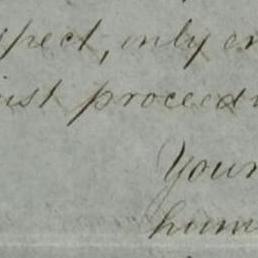 spect, only en
just proceedi
Your
hum